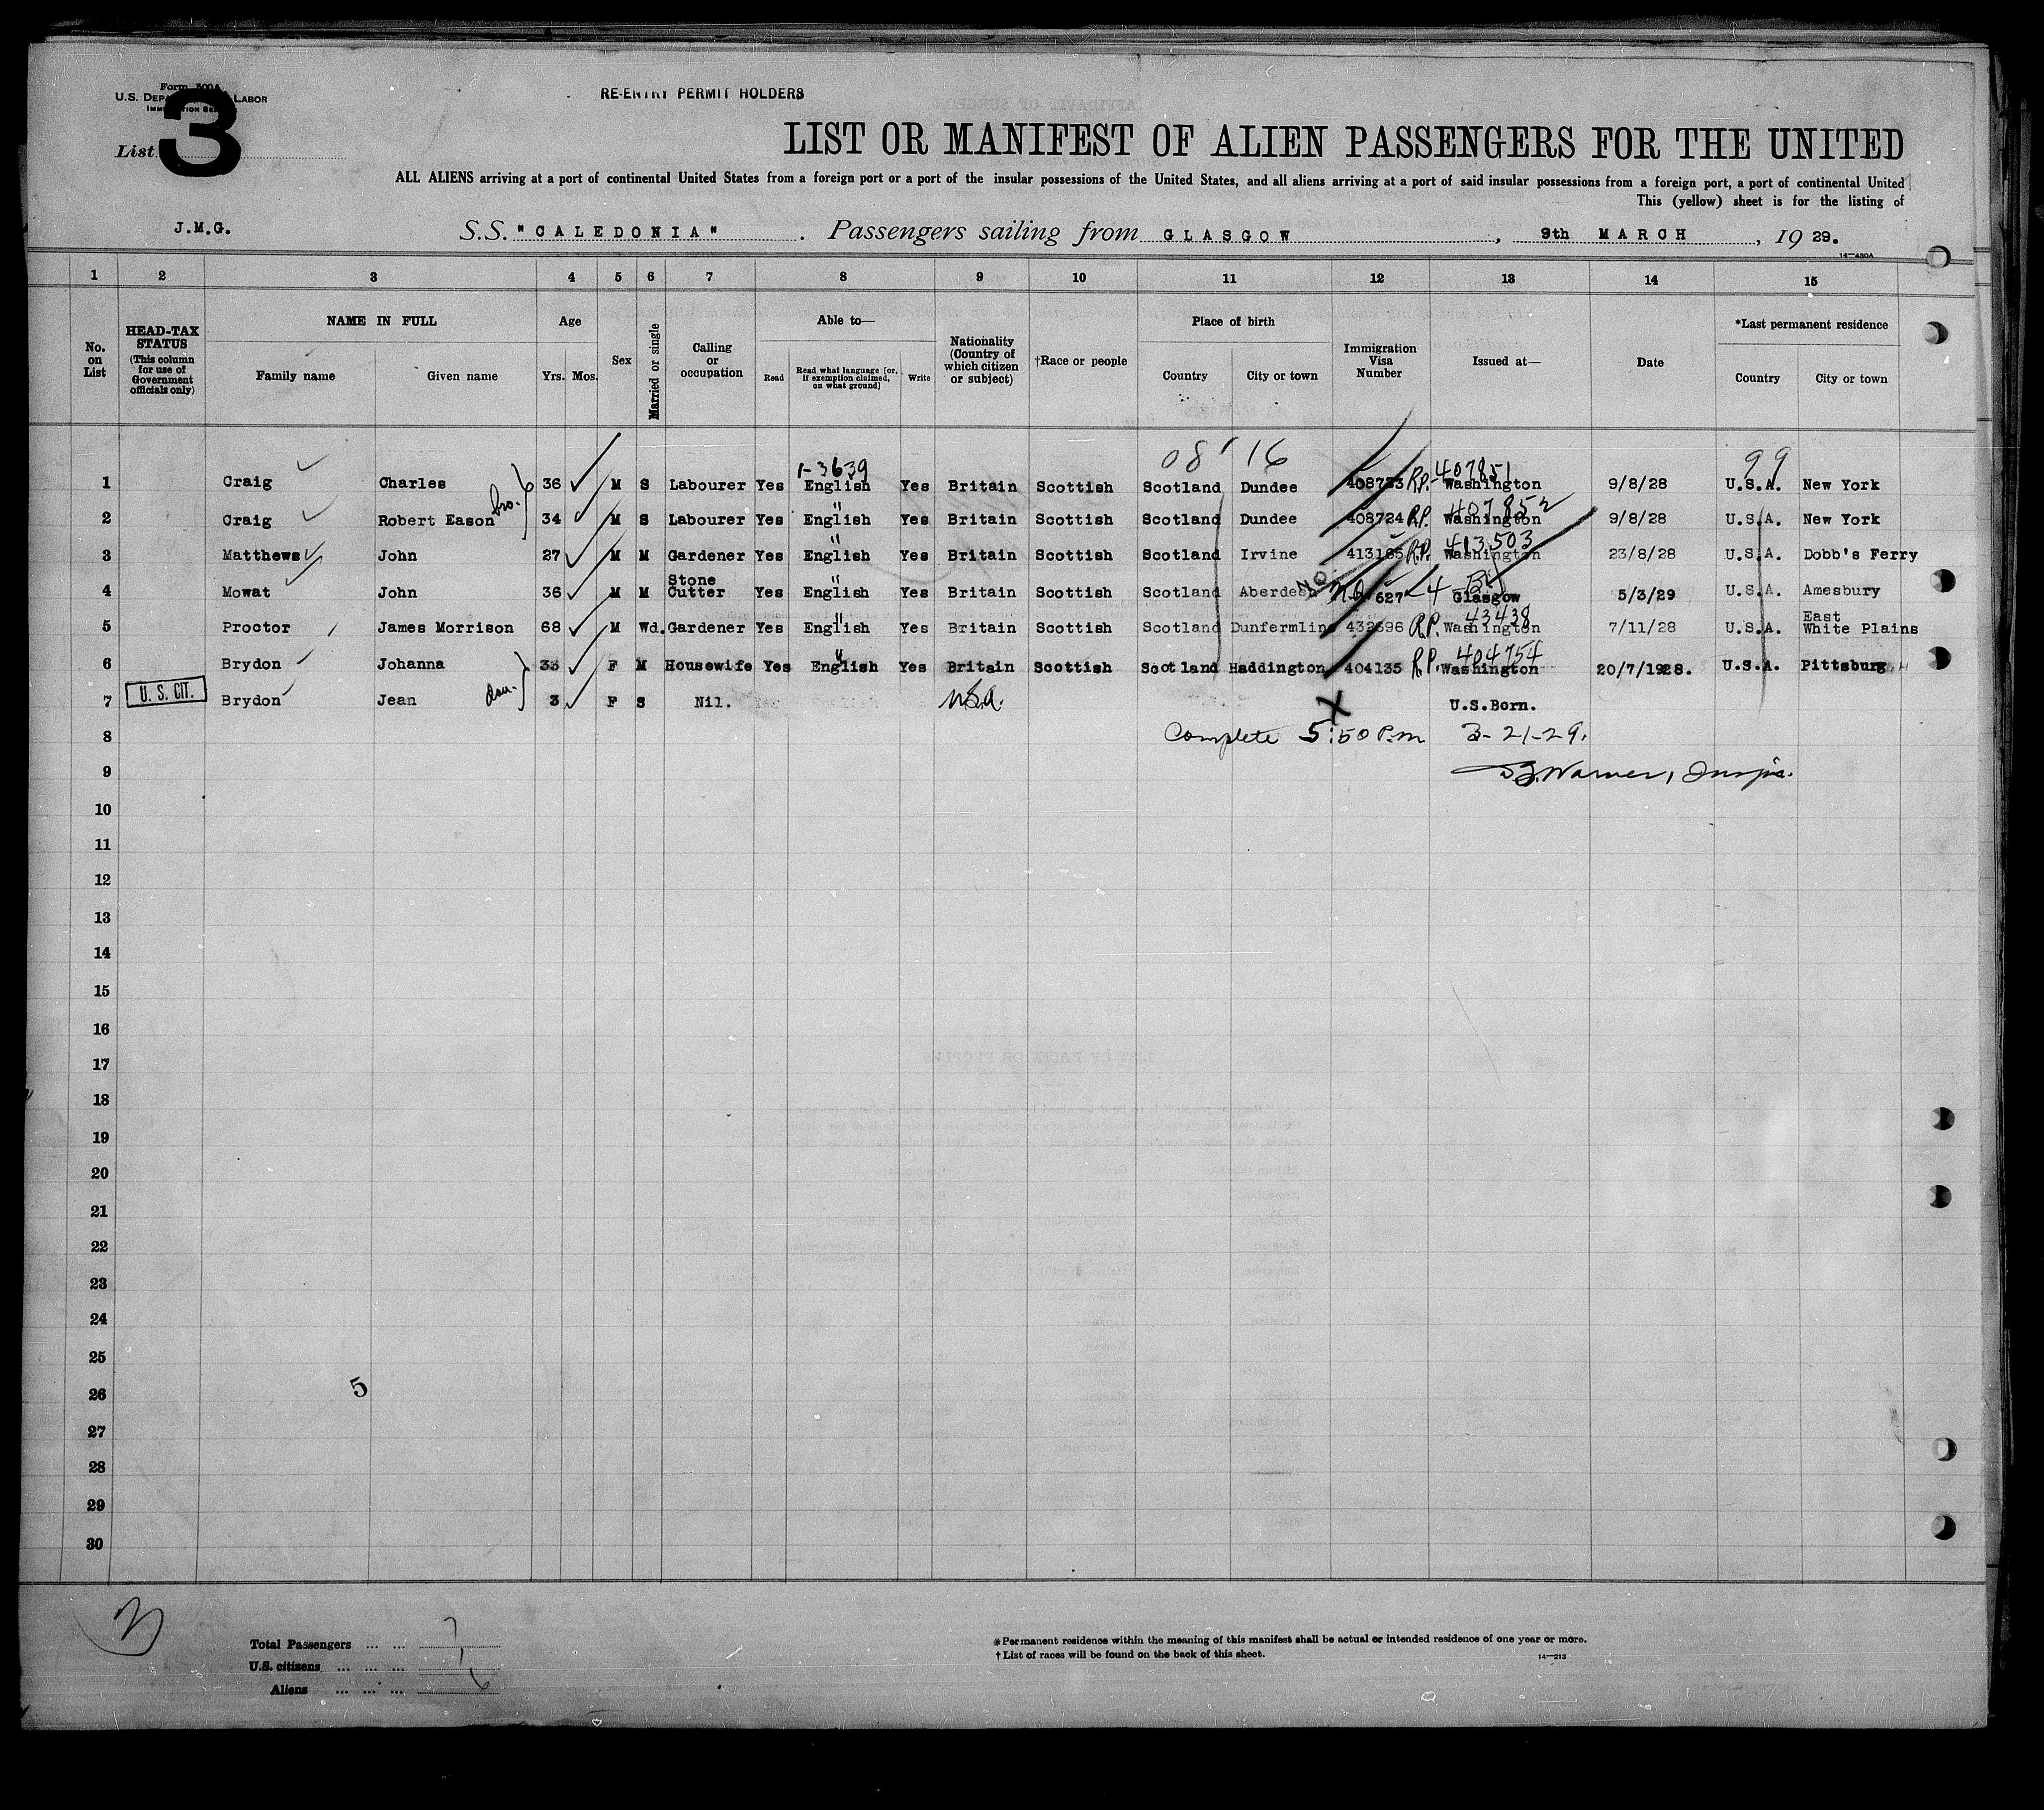 RE-ENTRY PERMIT HOLDERS
Form 500A
U.S. DEPARTMENT OF LABOR
IMMIGRATION SERVICE
List 3
LIST OR MANIFEST OF ALIEN PASSENGERS FOR THE UNITED
ALL ALIENS arriving at a port of continental United States from a foreign port or a port of the insular possessions of the United States, and all aliens arriving at a port of said insular possessions from a foreign port, a port of continental United
This (yellow) sheet is for the listing of
J.M.G.
S.S. "CALEDONIA". Passengers sailing from GLASGOW, 9th MARCH, 19 29.
14—430A
1 2 3 4 5 6 7 8 9 10 11 12 13 14 15
No. on List
HEAD-TAX STATUS (This column for use of Government officials only)
NAME IN FULL Family name Given name
Age Yrs. Mos.
Sex
Married or single
Calling or occupation
Able to— Read Read what language [or, if exemption claimed, on what ground] Write
Nationality (Country of which citizen or subject)
†Race or people
Place of birth Country City or town
Immigration Visa Number
Issued at—
Date
*Last permanent residence Country City or town
1-3639 08'16 99
1 Craig Charles 36 M S Labourer Yes English Yes Britain Scottish Scotland Dundee 408723 R.P.-407851 Washington 9/8/28 U.S.A. New York
bro.
2 Craig Robert Eason 34 M S Labourer Yes English " Yes Britain Scottish Scotland Dundee 408724 R.P. 407852 Washington 9/8/28 U.S.A. New York
3 Matthews John 27 M M Gardener Yes English " Yes Britain Scottish Scotland Irvine 413185 R.P. 413503 Washington 23/8/28 U.S.A. Dobb's Ferry
4 Mowat John 36 M M Stone Cutter Yes English " Yes Britain Scottish Scotland Aberdeen NO 627 Glasgow 5/3/29 U.S.A. Amesbury
5 Proctor James Morrison 68 M Wd. Gardener Yes English " Yes Britain Scottish Scotland Dunfermline 432696 R.P. 43438 Washington 7/11/28 U.S.A. East White Plains
6 Brydon Johanna 33 F M Housewife Yes English " Yes Britain Scottish Scotland Haddington 404135 R.P. 404754 Washington 20/7/1928. U.S.A. Pittsburg
7 U.S. CIT. Brydon Jean dau. 3 F S Nil. U.S.A. X U.S.Born.
8 Complete 5:50 P.m 3-21-29.
9 Warner, Inspr.
10
11
12
13
14
15
16
17
18
19
20
21
22
23
24
25
26
5
27
28
29
30
Total Passengers ... ... 7
U.S. citizens ... ... ... 1
Aliens ... ... ... 6
*Permanent residence within the meaning of this manifest shall be actual or intended residence of one year or more.
†List of races will be found on the back of this sheet.
14—213